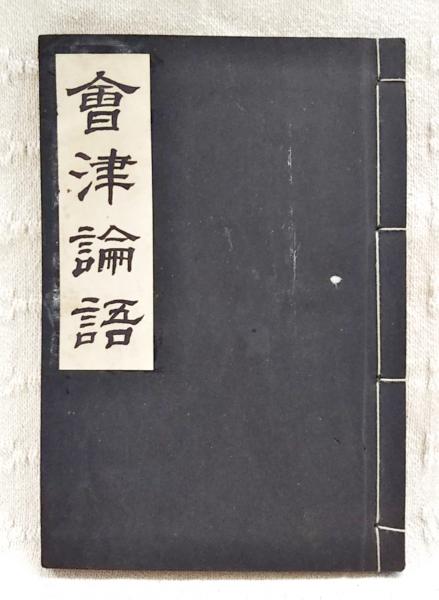 會津論語